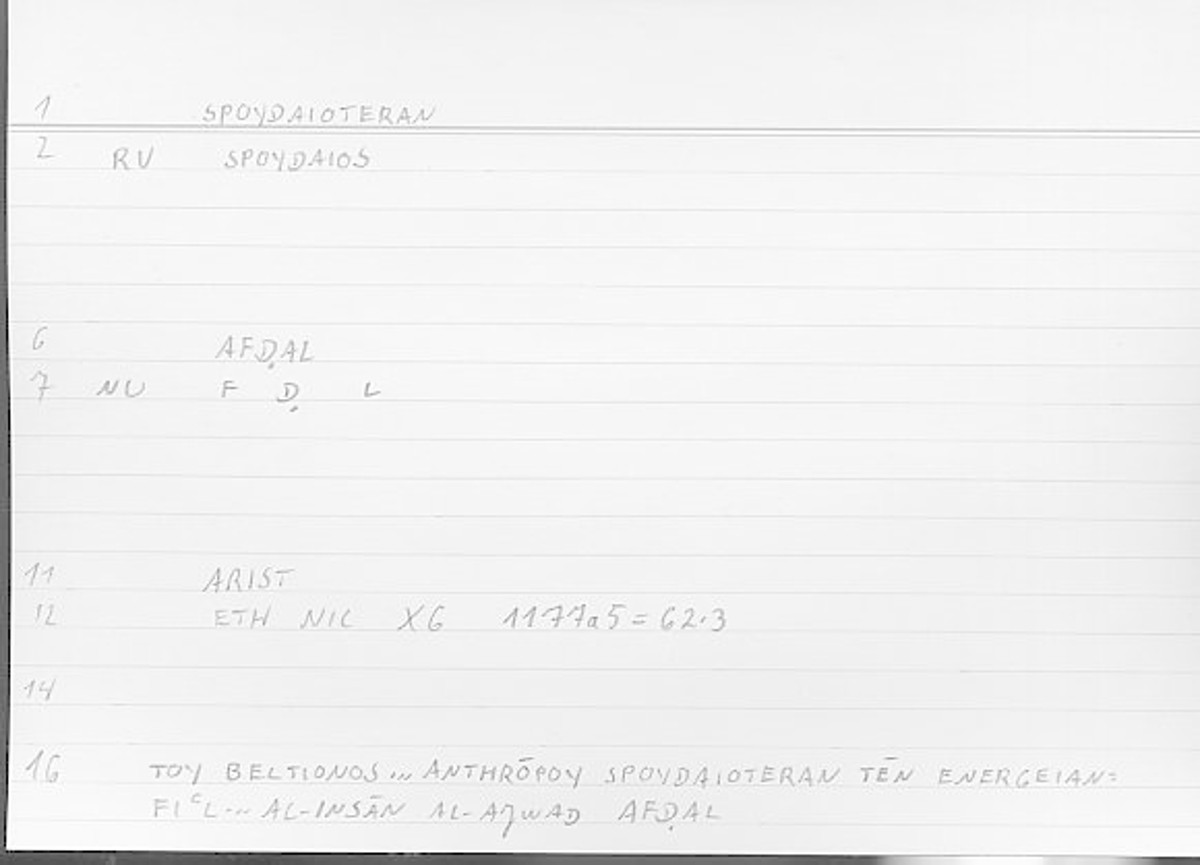 1 SPOYDAIOTERAN
2 RU SPOYDAIOS
6 AFḌAL
7 NU F Ḍ L
11 ARIST
12 ETH NIC X6 1177a5=62.3
14
16 TOY BELTIONOS... ANTHRŌPOY SPOYDAIOTERAN TĒN ENERGEIAN:
FIᶜL... AL-INSĀN AL-AJWAD AFḌAL